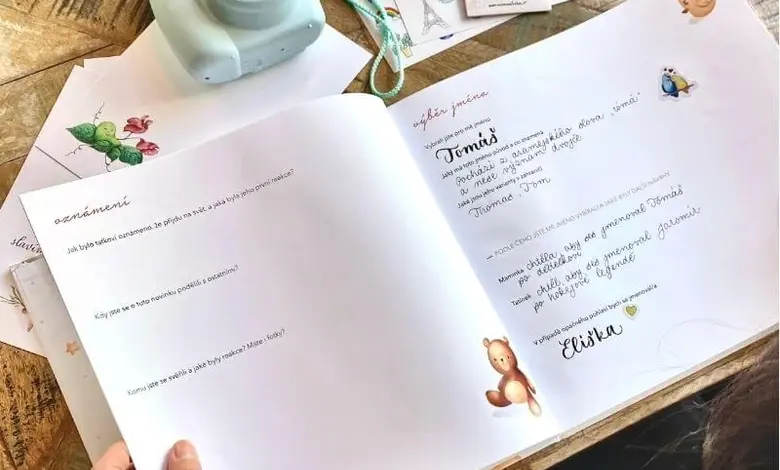 oznámení
Jak bylo taťkovi oznámeno, že přijdu na svět, a jaká byla jeho první reakce?
Kdy jste se o tuto novinku podělili s ostatními?
Komu jste se svěřili a jaké byly reakce? Máte i fotky?
výběr jména
Vybrali jste pro mě jméno
Tomáš
Jaký má toto jméno původ a co znamená
Pochází z aramejského slova „tômá"
a nese význam dvojče
Jaké jsou jeho varianty v zahraničí
Thomas, Tom
— PODLE ČEHO JSTE MÉ JMÉNO VYBÍRALI A JAKÉ BYLY DALŠÍ NÁVRHY
Maminka chtěla, aby ses jmenoval Tomáš
po dědečkovi
Tatínek chtěl, aby ses jmenoval Jaromír
po hokejové legendě
V případě opačného pohlaví bych se jmenoval/a
Eliška
slavím